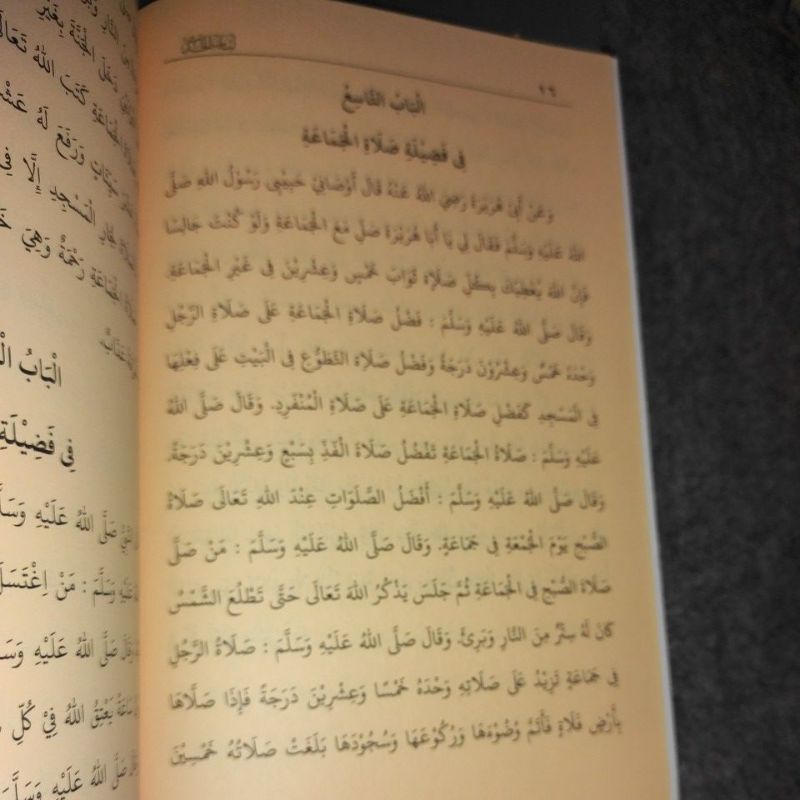 ١٦
الْبَابُ التَّاسِعُ
فِي فَضِيْلَةِ صَلَاةِ الْجَمَاعَةِ
وَعَنْ أَبِي هُرَيْرَةَ رَضِيَ اللهُ عَنْهُ قَالَ أَوْصَانِيْ حَبِيْبِيْ رَسُوْلُ اللهِ صَلَّى
اللهُ عَلَيْهِ وَسَلَّمَ فَقَالَ لِي يَا أَبَا هُرَيْرَةَ صَلِّ مَعَ الْجَمَاعَةِ وَلَوْ كُنْتَ جَالِسًا
فَإِنَّ اللهَ يُعْطِيْكَ بِكُلِّ صَلَاةٍ ثَوَابَ خَمْسٍ وَعِشْرِيْنَ فِي غَيْرِ الْجَمَاعَةِ.
وَقَالَ صَلَّى اللهُ عَلَيْهِ وَسَلَّمَ : فَضْلُ صَلَاةِ الْجَمَاعَةِ عَلَى صَلَاةِ الرَّجُلِ
وَحْدَهُ خَمْسٌ وَعِشْرُوْنَ دَرَجَةً وَفَضْلُ صَلَاةِ التَّطَوُّعِ فِي الْبَيْتِ عَلَى فِعْلِهَا
فِي الْمَسْجِدِ كَفَضْلِ صَلَاةِ الْجَمَاعَةِ عَلَى صَلَاةِ الْمُنْفَرِدِ. وَقَالَ صَلَّى اللهُ
عَلَيْهِ وَسَلَّمَ : صَلَاةُ الْجَمَاعَةِ تَفْضُلُ صَلَاةَ الْفَذِّ بِسَبْعٍ وَعِشْرِيْنَ دَرَجَةً.
وَقَالَ صَلَّى اللهُ عَلَيْهِ وَسَلَّمَ : أَفْضَلُ الصَّلَوَاتِ عِنْدَ اللهِ تَعَالَى صَلَاةُ
الصُّبْحِ يَوْمَ الْجُمْعَةِ فِي جَمَاعَةٍ. وَقَالَ صَلَّى اللهُ عَلَيْهِ وَسَلَّمَ : مَنْ صَلَّى
صَلَاةَ الصُّبْحِ فِي الْجَمَاعَةِ ثُمَّ جَلَسَ يَذْكُرُ اللهَ تَعَالَى حَتَّى تَطْلُعَ الشَّمْسُ
كَانَ لَهُ سِتْرٌ مِنَ النَّارِ وَبَرِئَ. وَقَالَ صَلَّى اللهُ عَلَيْهِ وَسَلَّمَ : صَلَاةُ الرَّجُلِ
فِي جَمَاعَةٍ تَزِيْدُ عَلَى صَلَاتِهِ وَحْدَهُ خَمْسًا وَعِشْرِيْنَ دَرَجَةً فَإِذَا صَلَّاهَا
بِأَرْضِ فَلَاةٍ فَأَتَمَّ وُضُوْءَهَا وَرُكُوْعَهَا وَسُجُوْدَهَا بَلَغَتْ صَلَاتُهُ خَمْسِيْنَ
الْجَمَاعَةِ كَتَبَ اللهُ
وَرَفَعَ لَهُ
الْمَسْجِدِ إِلَّا فِي
الْجَمَاعَةِ رَحْمَةٌ وَهِيَ
الْبَابُ
فِي فَضِيْلَةِ
صَلَّى اللهُ عَلَيْهِ
وَسَلَّمَ : مَنْ اِغْتَسَلَ
صَلَّى اللهُ عَلَيْهِ
يَعْتِقُ اللهُ فِيْ كُلِّ
صَلَّى اللهُ عَلَيْهِ